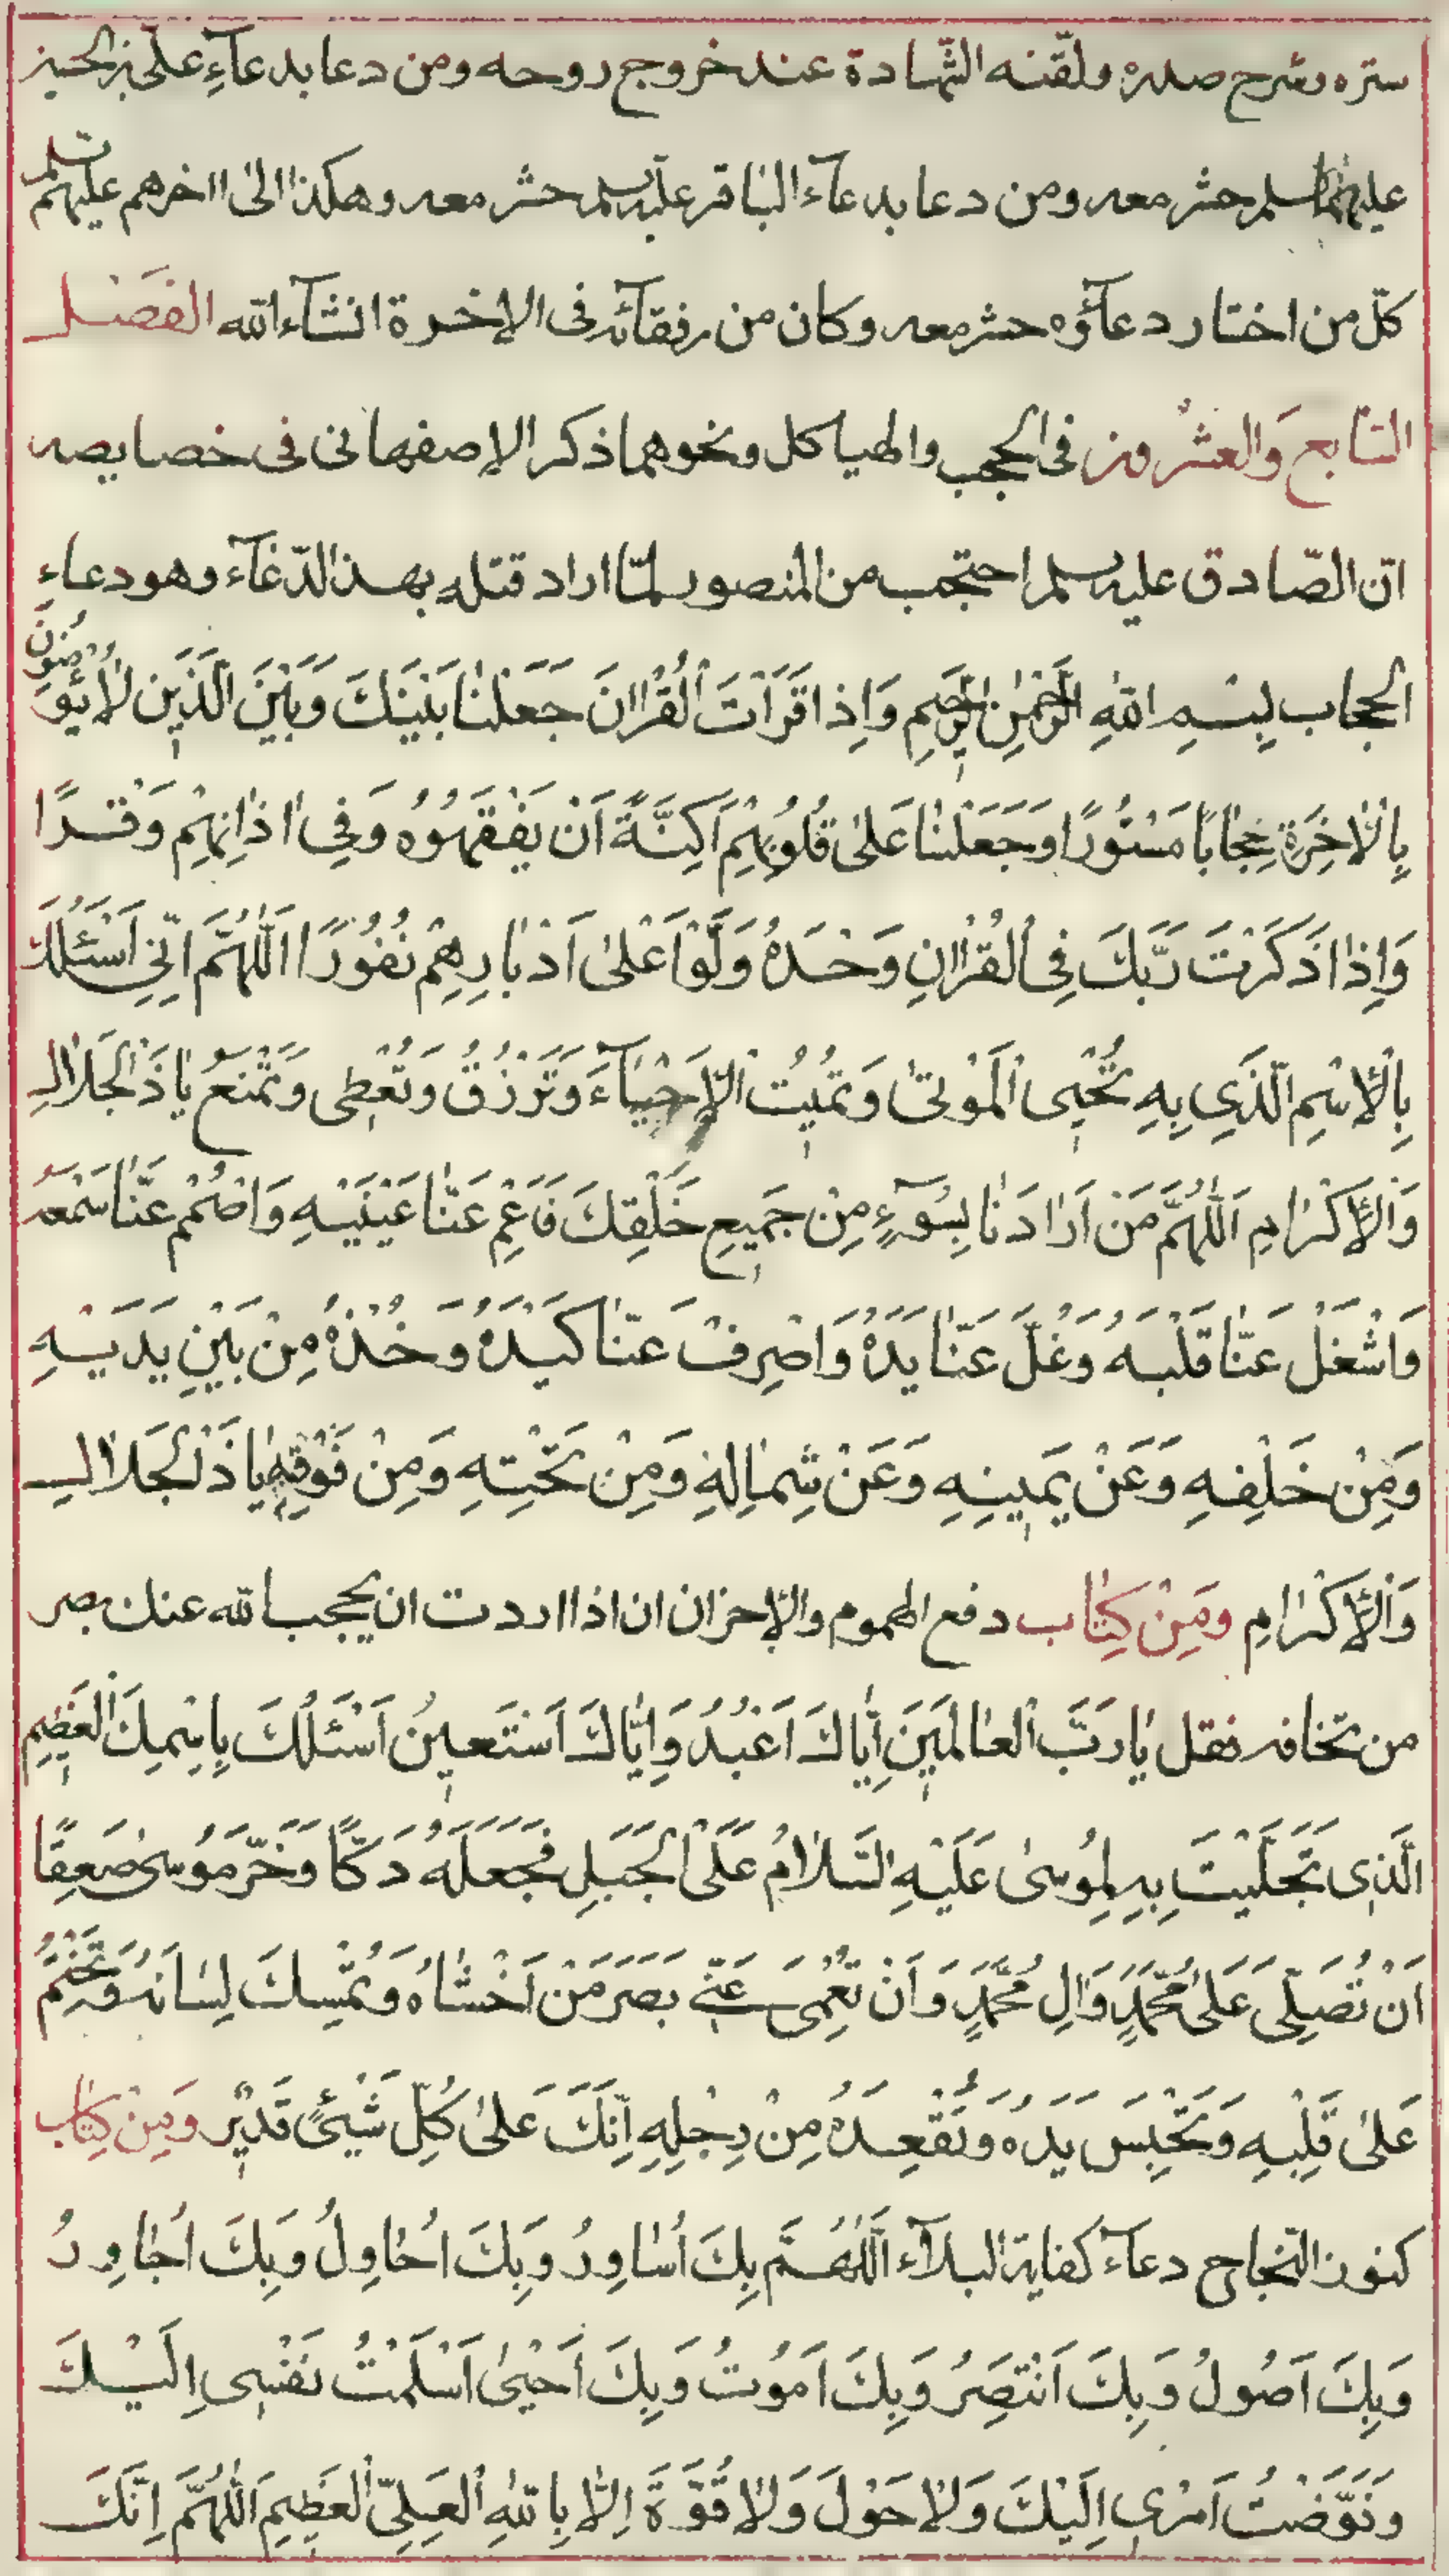 ستره وشرح صدره ولقّنه الشّهادة عند خروج روحه ومن دعا بدعآءِ علىّ بن الحسين
عليهما السلم حشر معه ومن دعا بدعآء الباقر عليه سلم حشر معه وهكذا الى ااخرهم عليهم سلم
كلّ من اختار دعآؤه حشر معه وكان من رفقآئه فى الاخرة انشآء الله الفَصْل
السّابع وَالعشْرون فى الحجب والهياكل ونحوهما ذكر الاصفهانى فى خصايصه
انّ الصّادق عليه سلم احتجب من المنصور لمّا اراد قتله بهذا الدّعآء وهو دعاءِ
الحجاب بِسْمِ اللهِ الرَّحْمٰنِ الرَّحيمِ وَاِذا قَرَأْتَ الْقُرْاانَ جَعَلْنٰا بَيْنَكَ وَبَيْنَ الَّذَينَ لٰا يُؤمِنُونَ
بِالْاٰخِرَةِ حِجٰابًا مَسْتُورًا وَجَعَلْنٰا عَلىٰ قُلُوبِهِمْ اَكِنَّةً اَنْ يَفْقَهُوُه وَفِى اٰذٰانِهِمْ وَقْرًا
وَاِذٰا ذَكَرْتَ رَبَّكَ فِى الْقُرْاانِ وَحْدَهُ وَلَّوْا عَلىٰ اَدْبٰارِهِمْ نُفُورًا اَللّٰهُمَّ اِنّى اَسْئَلُكَ
بِالْاِسْمِ الَّذَى بِهِ تُحْيِى الْمَوْتىٰ وَتميُتُ الْاَحْيٰآءَ وَتَرْزُقُ وَتُعْطِى وَتَمْنَعُ يٰا ذَا الْجَلاٰلِ
وَالْاِكْرٰامِ اَللّٰهُمَّ مَنْ اَرٰادَنٰا بِسُوۤءٍ مِنْ جَميعِ خَلْقِكَ فَاَعْمِ عَنّٰا عَيْنَيْهِ وَاصْمُمْ عَنّٰا سَمْعَهُ
وَاشْغَلْ عَنّٰا قَلْبَهُ وَغُلَّ عَنّٰا يَدَهُ وَاصْرِفْ عَنّٰا كَيْدَهُ وَخُذْهُ مِنْ بَيْنِ يَدَيْهِ
وَمِنْ خَلْفِهِ وَعَنْ يَمينِهِ وَعَنْ شِمٰالِهِ وَمِنْ تَحْتِهِ وَمِنْ فَوْقِهِ يٰا ذَا الْجَلاٰلِ
وَالْاِكْرٰامِ ومَِنْ كِتٰاب دفع الهموم والاحزان ان اذا اردت ان يحجب الله عنك بصر
من تخافه فقل يٰا رَبَّ الْعٰالَمينَ اِيّٰاكَ اَعْبُدُ وَاِيّٰاكَ اَسْتَعينُ اَسْئَلُكَ بِاسْمِكَ الْعَظيمِ
الَّذى تَجَلَّيْتَ بِهِ لِمُوسىٰ عَلَيْهِ السَّلاٰمُ عَلَى الْجَبَلِ فَجَعَلَهُ دَكًّا وَخَرَّ مَوُسىٰ صَعِقًا
اَنْ تُصَلِّىَ عَلىٰ مُحَمَّدٍ وَاٰلِ مُحَمَّدٍ وَاَنْ تُعْمِىَ عَنّى بَصَرَ مَنْ اَخْشٰاهُ وَتُمْسِكَ لِسٰانَهُ وَتَخْتِمَ
عَلىٰ قَلْبِهِ وَتَحْبِسَ يَدَهُ وَتُقْعِدَهُ مِنْ رِجْلِهِ اِنَّكَ عَلىٰ كُلِّ شَيْئٍ قَديْر وَمِنْ كِتٰاب
كنوز النّجاح دعآء كفاية البلآء اَللّٰهُمَّ بِكَ اُسٰاوِرُ وَبِكَ اُحٰاوِلُ وَبِكَ اُجٰاوِرُ
وَبِكَ اَصُولُ وَبِكَ اَنْتَصِرُ وَبِكَ اَمُوتُ وَبِكَ اَحْيىٰ اَسْلَمْتُ نَفْسِى اِلَيْكَ
وَفَوَّضْتُ اَمْرى اِلَيْكَ وَلاٰ حَوْلَ وَلاٰ قُوَّةَ اِلّٰا بِاللهِ الْعَلِىِّ الْعَظِيمِ اَللّٰهُمَّ اِنَّكَ